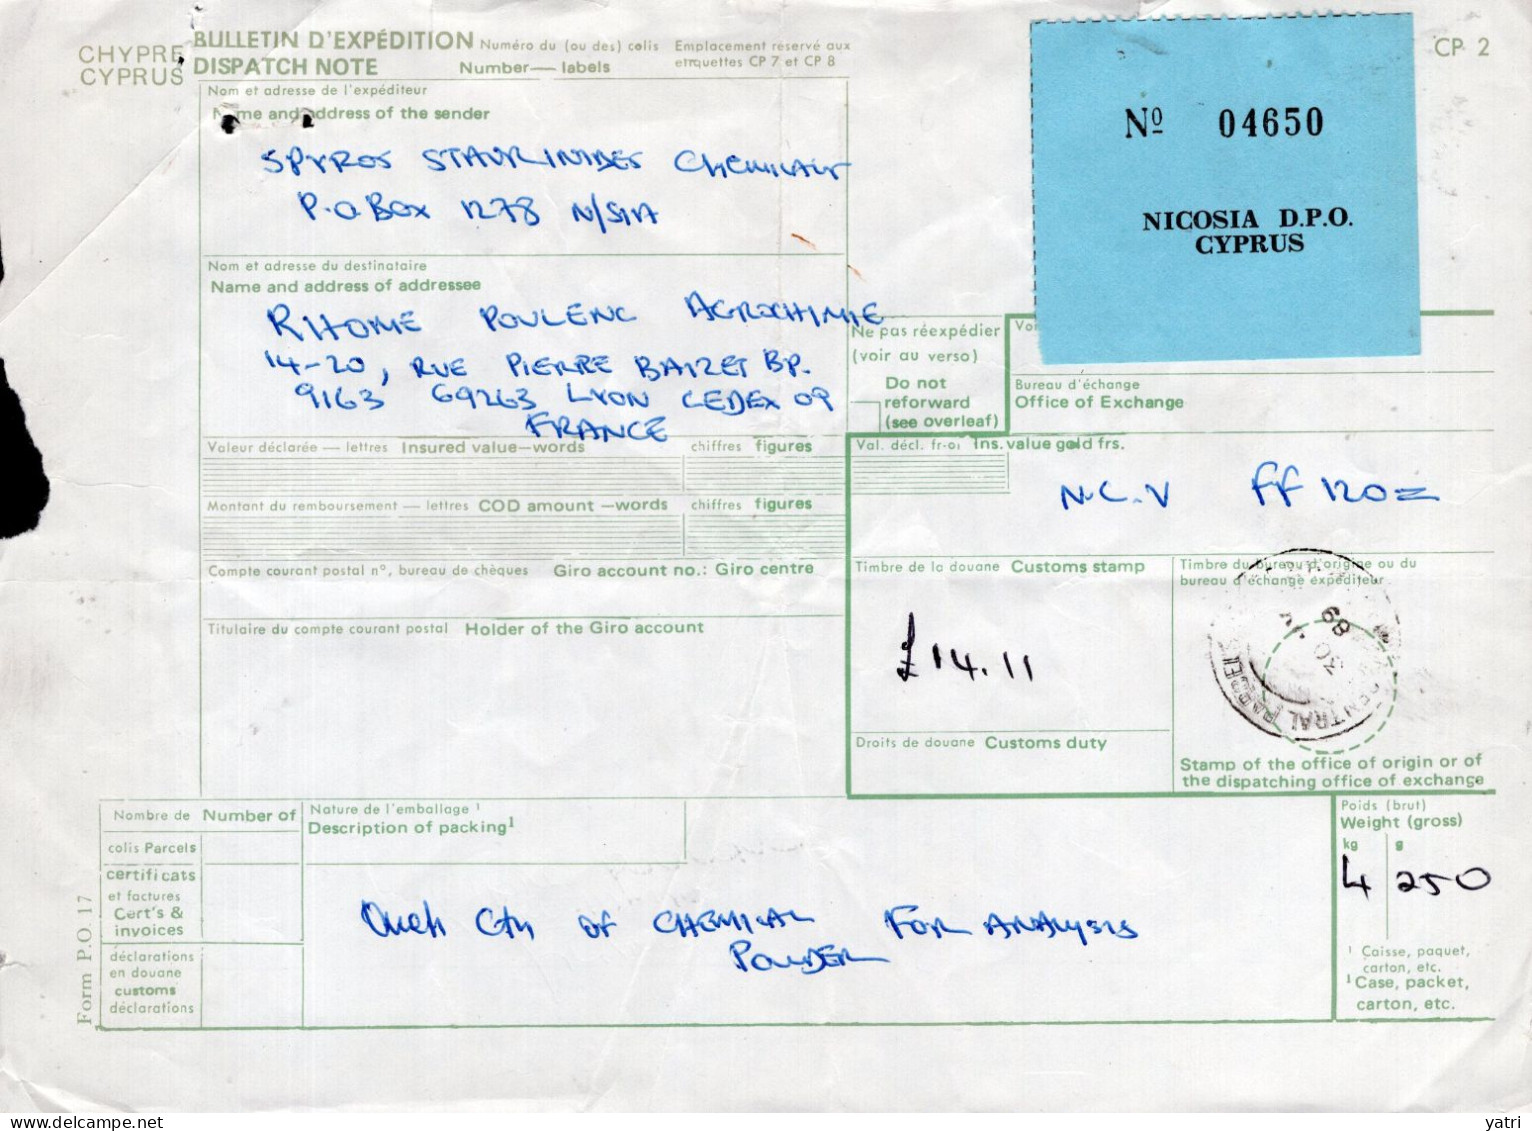 CHYPRE
CYPRUS
BULLETIN D'EXPÉDITION
DISPATCH NOTE
Numéro du (ou des) colis
Number— labels
Emplacement réservé aux
etiquettes CP 7 et CP 8
CP 2
Nom et adresse de l'expéditeur
Name and address of the sender
SPYROS STAVRINIDES CHEMICALS
P.O.BOX 1278 N/SIA
Nº 04650
NICOSIA D.P.O.
CYPRUS
Nom et adresse du destinataire
Name and address of addressee
RHONE POULENC AGROCHIMIE
14-20, RUE PIERRE BAIZET BP.
9163 69263 LYON CEDEX 09
FRANCE
Ne pas réexpédier
(voir au verso)
Do not
reforward
(see overleaf)
Voi
Bureau d'échange
Office of Exchange
Valeur déclarée — lettres Insured value—words
chiffres figures
Val. décl. fr-or Ins. value gold frs.
N.C.V FF 120=
Montant du remboursement — lettres COD amount —words
chiffres figures
Compte courant postal n°, bureau de chèques Giro account no.: Giro centre
Titulaire du compte courant postal Holder of the Giro account
Timbre de la douane Customs stamp
£14.11
Droits de douane Customs duty
Timbre du bureau d'origine ou du
bureau d'échange expéditeur
CENTRAL PARCELS
89
Stamp of the office of origin or of
the dispatching office of exchange
Nombre de Number of
colis Parcels
certificats
et factures
Cert's &
invoices
déclarations
en douane
customs
déclarations
Nature de l'emballage ¹
Description of packing¹
OF CHEMICAL FOR ANALYSIS
POWDER
Poids (brut)
Weight (gross)
kg g
4 250
¹ Caisse, paquet,
carton, etc.
¹ Case, packet,
carton, etc.
Form P.O. 17
yatri